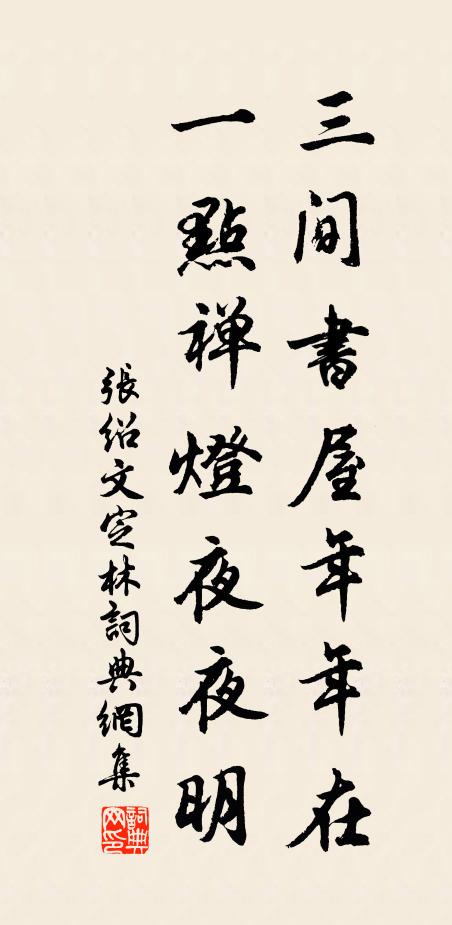 三間書屋年年在
一點禅燈夜夜明
張绍文定林詞典網集
詞典網印